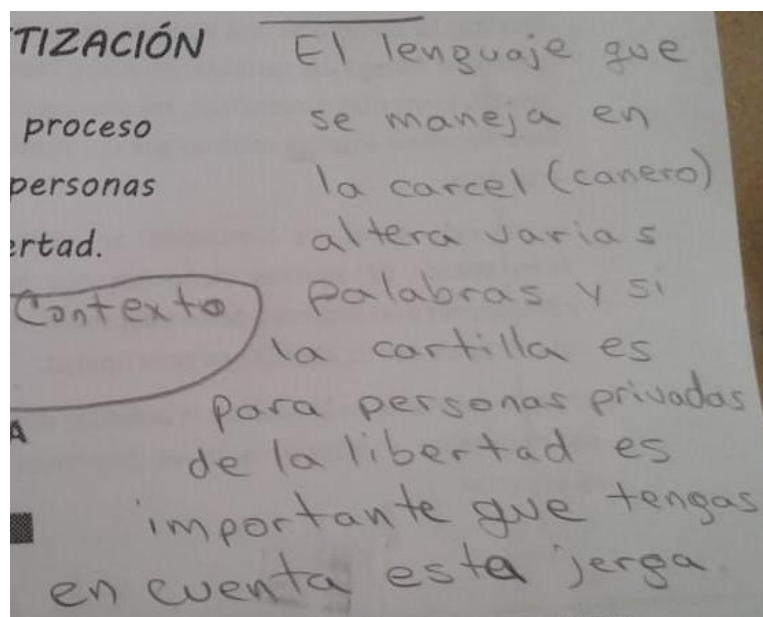 TIZACIÓN
proceso
personas
ertad.
Contexto
A
El lenguaje que
se maneja en
la carcel (canero)
altera varias
palabras y si
la cartilla es
para personas privadas
de la libertad es
importante que tengas
en cuenta esta jerga